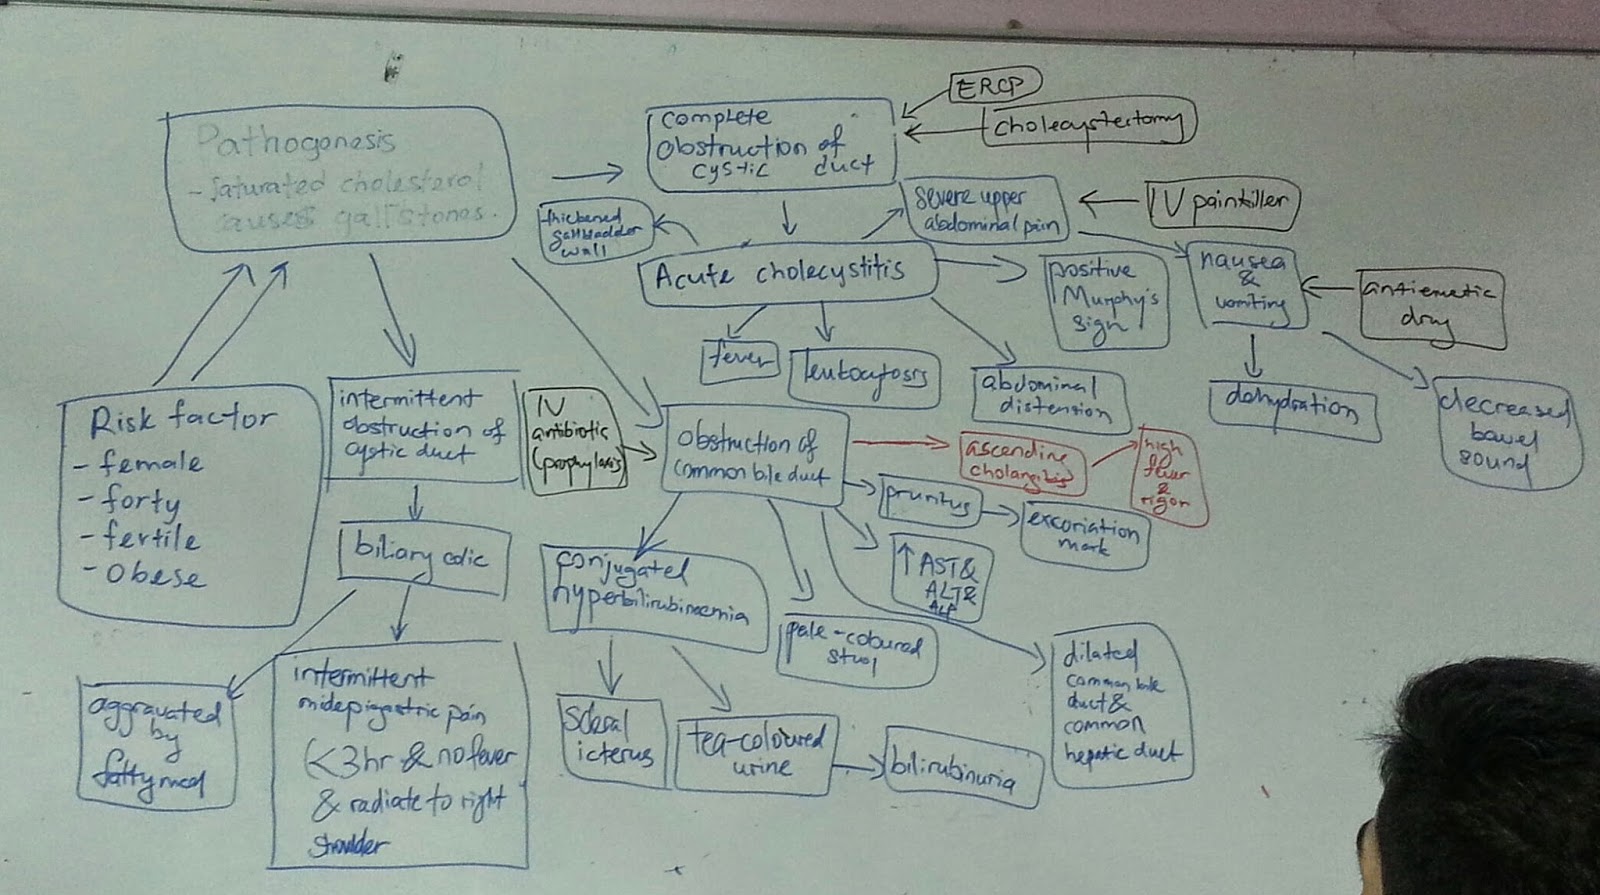 Pathogenesis
- saturated cholesterol
causes gallstones.
complete
obstruction of
cystic duct
ERCP
cholecystectomy
thickened
gallbladder
wall
severe upper
abdominal pain
IV painkiller
Acute cholecystitis
positive
Murphy's
sign
nausea
&
vomiting
antiemetic
drug
fever
leukocytosis
abdominal
distention
dehydration
decreased
bowel
sound
Risk factor
- female
- forty
- fertile
- obese
intermittent
obstruction of
cystic duct
IV
antibiotic
(prophylaxis)
obstruction of
common bile duct
ascending
cholangitis
high
fever
&
rigor
pruritus
excoriation
mark
biliary colic
conjugated
hyperbilirubinaemia
↑ AST &
ALT &
ALP
pale-coloured
stool
dilated
common bile
duct &
common
hepatic duct
aggravated
by
fatty meal
intermittent
midepigastric pain
(<3hr & no fever
& radiate to right
shoulder
scleral
icterus
tea-coloured
urine
bilirubinuria